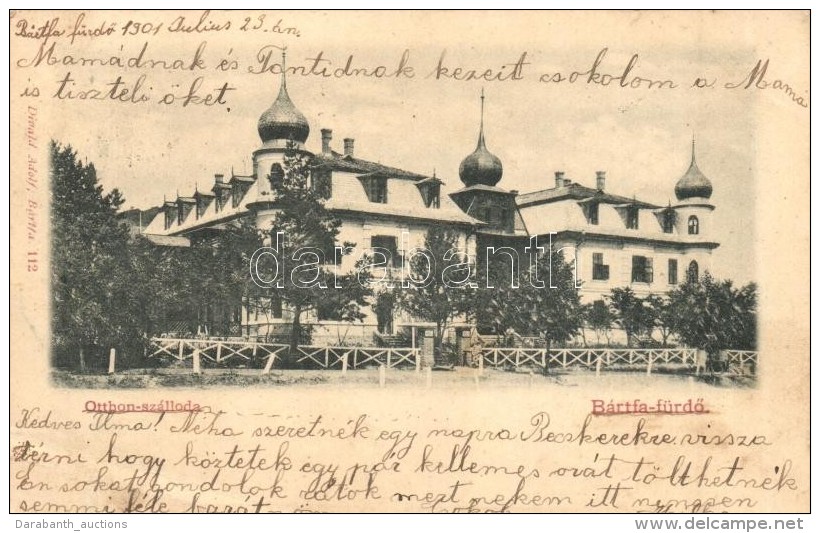 Bártfa fürdő 1901 Julius 23.án.
Mamádnak és Tantidnak kezeit csokolom a Mama
is tiszteli őket
Divald Adolf, Bártfa 112
darabanth
Otthon-szálloda
Bártfa-fürdő.
Kedves Ilma! Néha szeretnék égy napra Becskerekre vissza
térni hogy köztetek égy pár kellemes orát tölthetnék
én sokat gondolok rátok mert nekem itt nincsen
semmi féle barát
Darabanth_auctions
http://www.delcampe.net